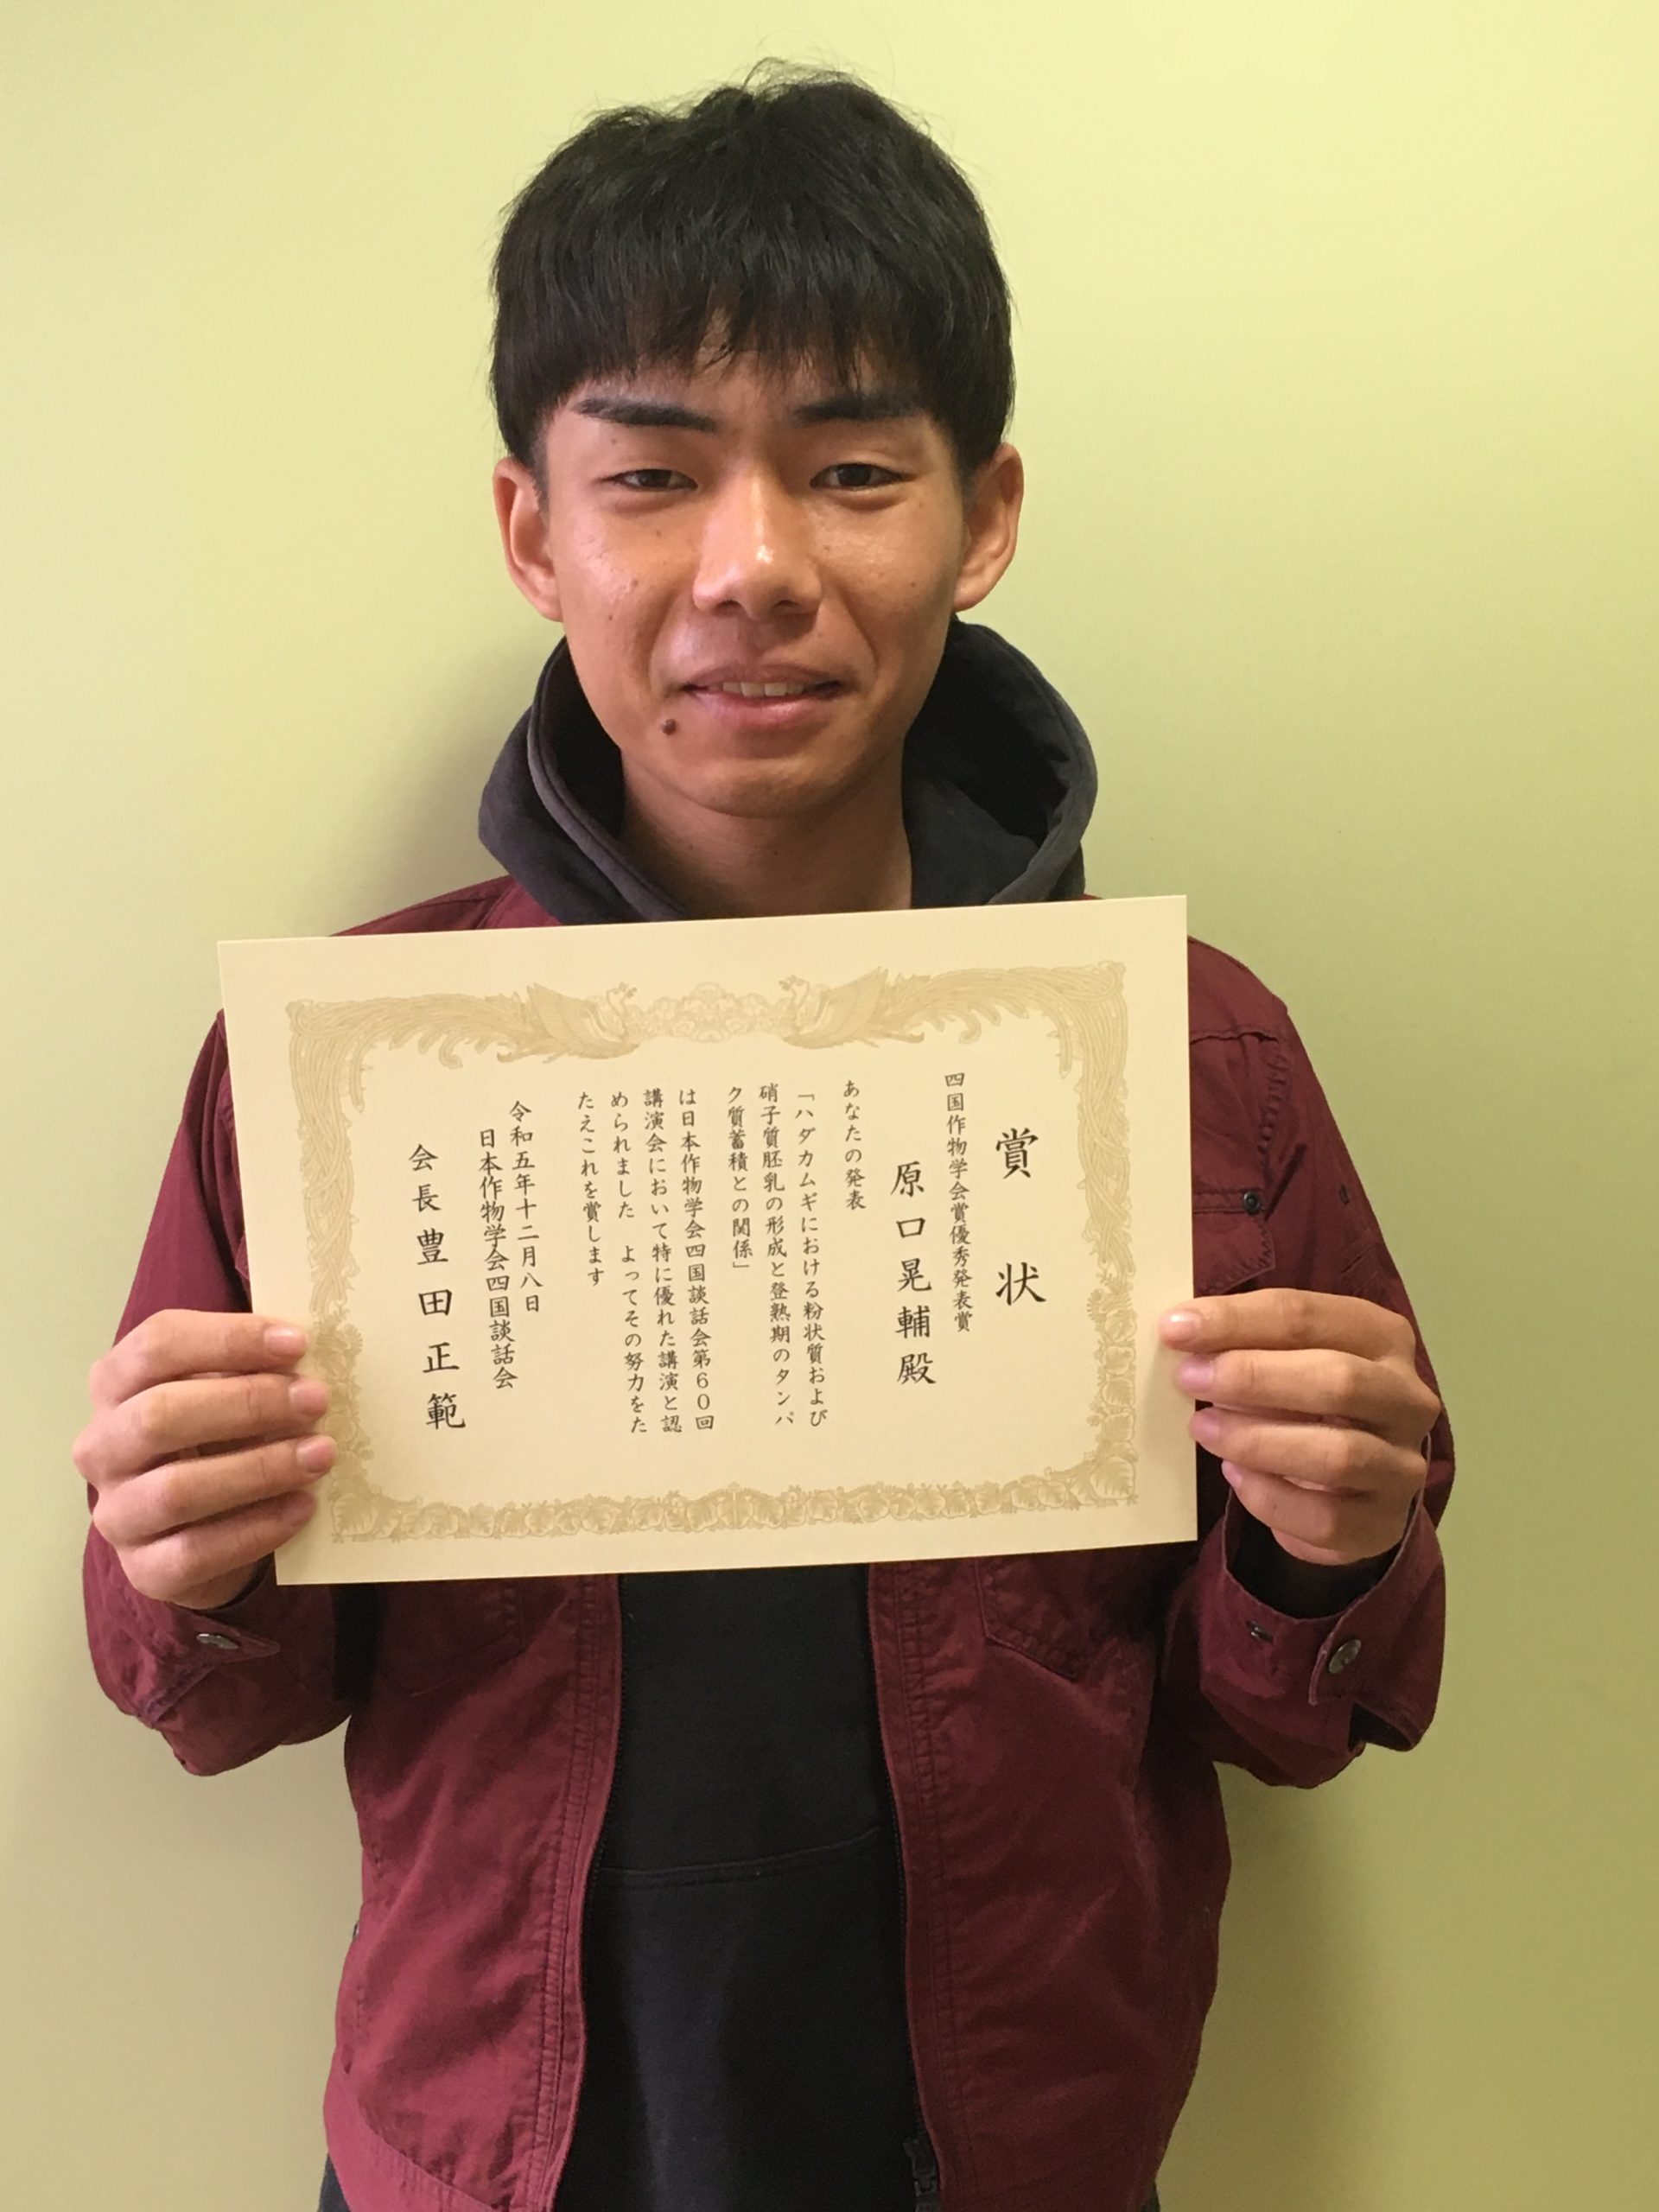 賞状
四国作物学会賞優秀発表賞
原口晃輔殿
あなたの発表
「ハダカムギにおける粉状質および
硝子質胚乳の形成と登熟期のタンパ
ク質蓄積との関係」
は日本作物学会四国談話会第60回
講演会において特に優れた講演と認
められました　よってその努力をた
たえこれを賞します
令和五年十二月八日
日本作物学会四国談話会
会長豊田正範